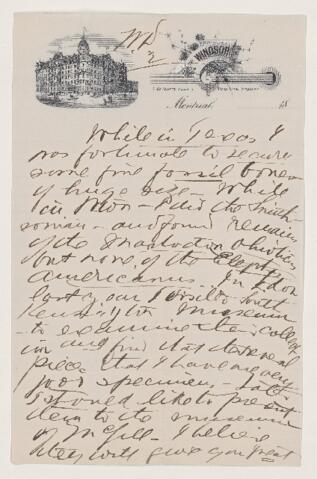 WD
2
WINDSOR
Montreal, 18
While in Texas I
was fortunate to secure
some fine fossil bones
of huge size – While
in Mon – I did the Smith-
sonian – and found remains
of the Mastodon Ohioticus
but none of the Elephas
Americanus. In Lon
don, our visit to South
Kensington Museum
to examine their collect
ion and find that several
pieces that I have are very
good specimens –
I should like to present
them to the museum
of McGill – I believe
they will give you great